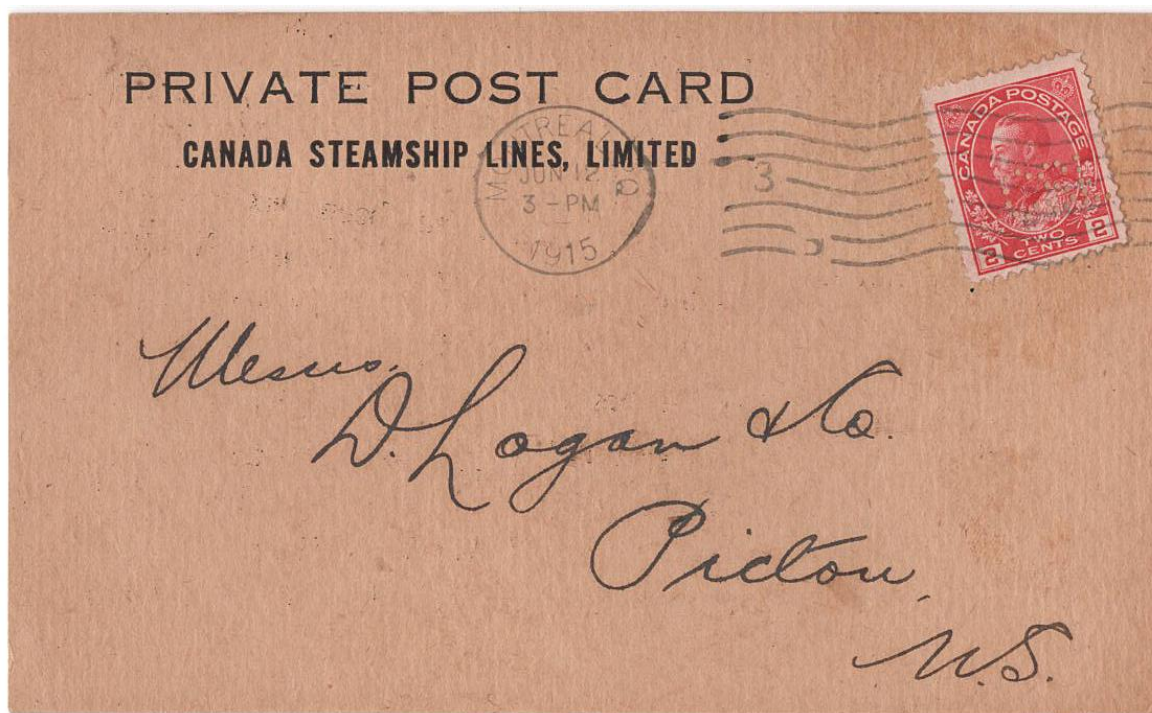 PRIVATE POST CARD
CANADA STEAMSHIP LINES, LIMITED
MONTREAL P.Q
JUN 12
3-PM
1915
3
CANADA POSTAGE
TWO
CENTS
2 2
Messrs.
D. Logan & Co.
Pictou,
N.S.